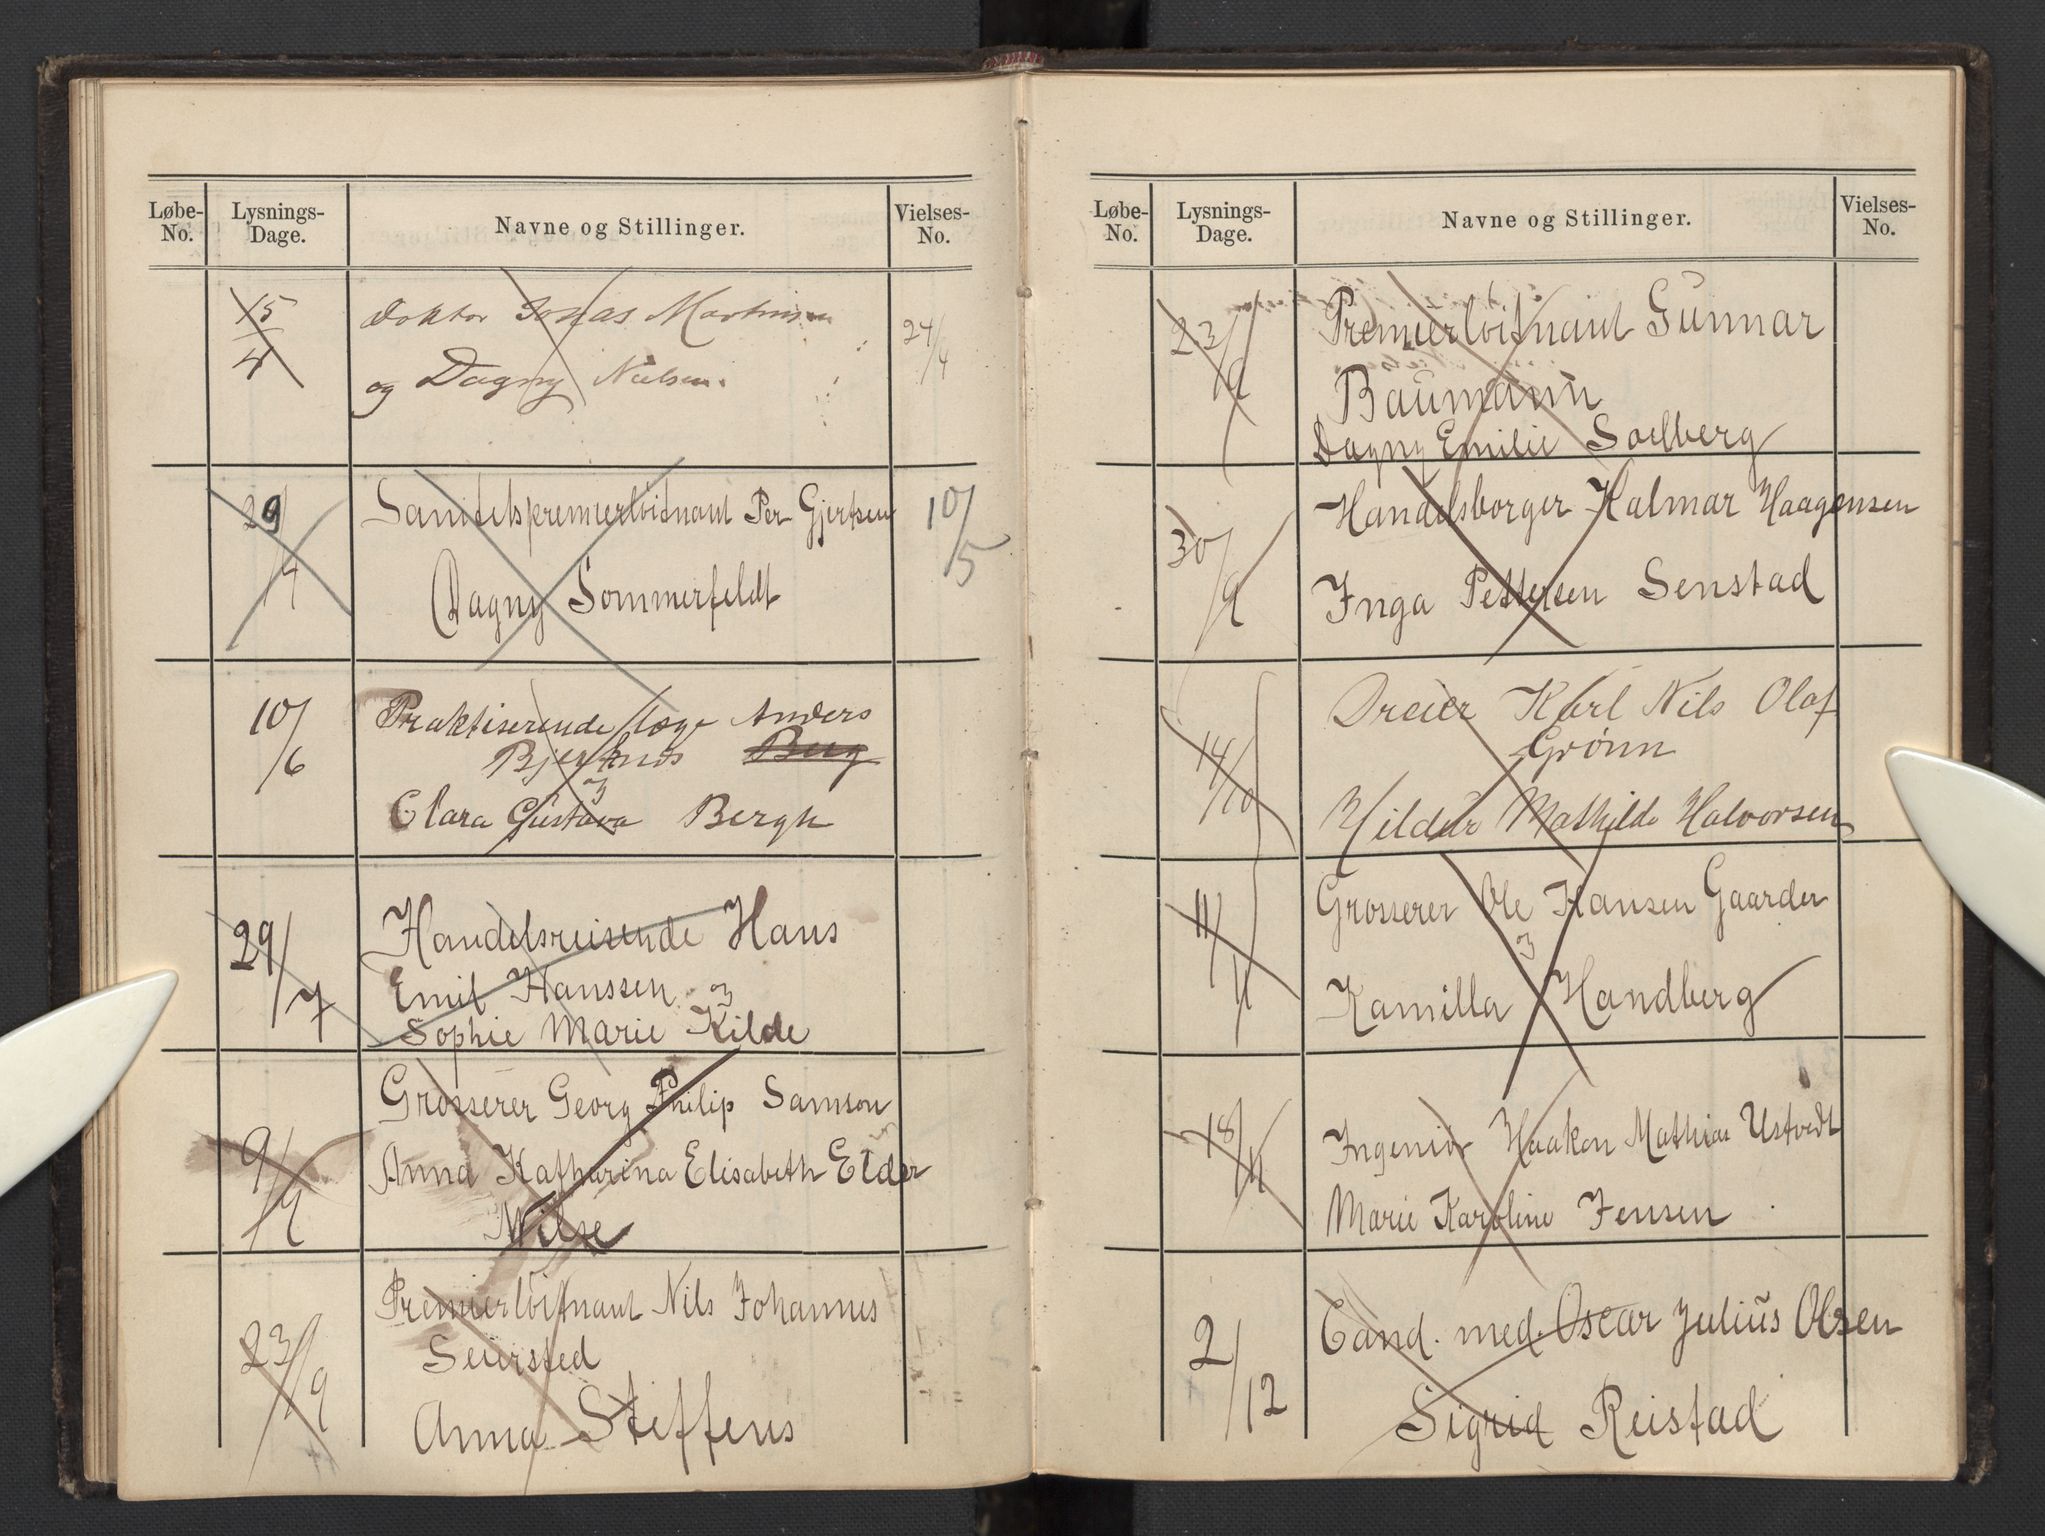 Løbe-No. Lysnings-Dage. Navne og Stillinger. Vielses-No.
15/4 Doktor Jonas Martinsen 24/4
og Dagny Nielsen.
29/4 Sanitetspremierløitnant Per Gjertsen 10/5
Dagny Sommerfeldt
10/6 Praktiserende læge Anders
Bjerknes Berg
og
Clara Gustava Bergh
29/7 Handelsreisende Hans
Emil Hanssen og
Sophie Marie Kilde
Grosserer Georg Philip Samson
9/9 Anna Katharina Elisabeth Elder
Nilse
Premierløitnant Nils Johannes
23/9 Seiersted
Anna Steffens
Løbe-No. Lysnings-Dage. Navne og Stillinger. Vielses-No.
23/9 Premierløitnant Gunnar
Baumann
Dagny Emilie Soelberg
Handelsborger Halmar Haagensen
30/9
Inga Pettersen Senstad
Dreier Karl Nils Olaf
14/10 Grønn
Hildur Mathilde Halvorsen
Grosserer Ole Hansen Gaarder
11/11 og
Kamilla Handberg
18/11 Ingeniør Haakon Mathias Ustvedt
Marie Karoline Jensen
2/12 Cand. med. Oscar Julius Olsen
Sigrid Reistad